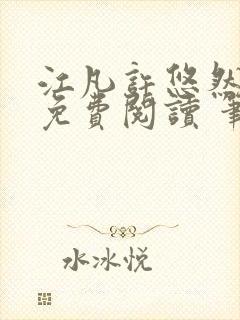 江凡許悠然
免費閱讀 筆
水冰悦